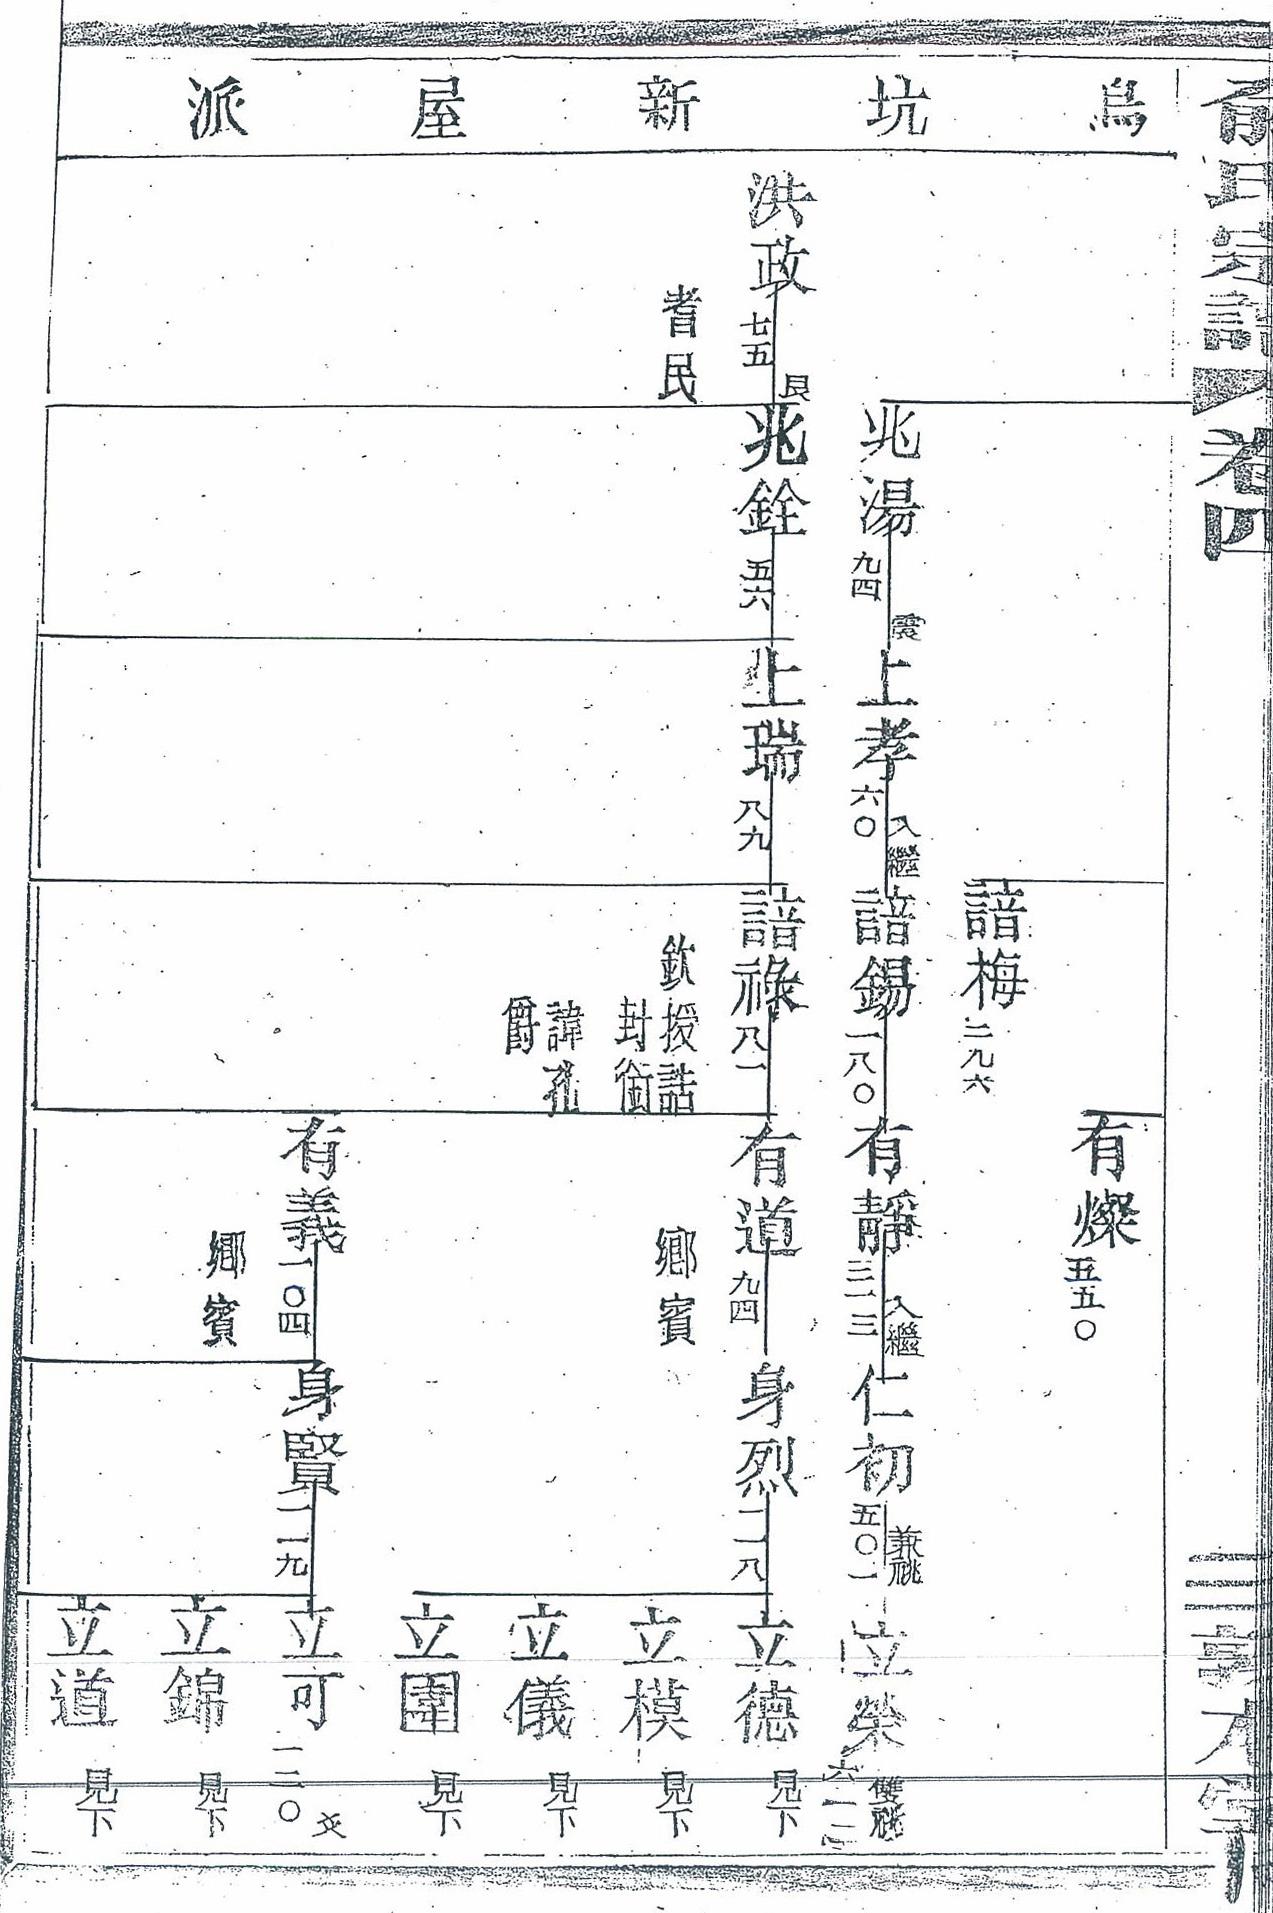 俞氏宗譜
卷四
三
烏坑新屋派
洪政 七五 艮
耆民
兆湯 九四 震
兆銓 五六
上孝 六〇 入繼
上瑞 八九
諳梅 二九六
諳錫 一八〇
諳祿 八一
欽授誥
封銜
諱孔
爵
有燦 五五〇
有靜 三一三 入繼
有道 九四
鄉賓
有義 一〇四
鄉賓
仁初 五〇一 兼祧
身烈 一一八
身賢 一一九
立榮 雙祧
立德 見下
立模 見下
立儀 見下
立圍 見下
立可 一二〇
立錦 見下
立道 見下